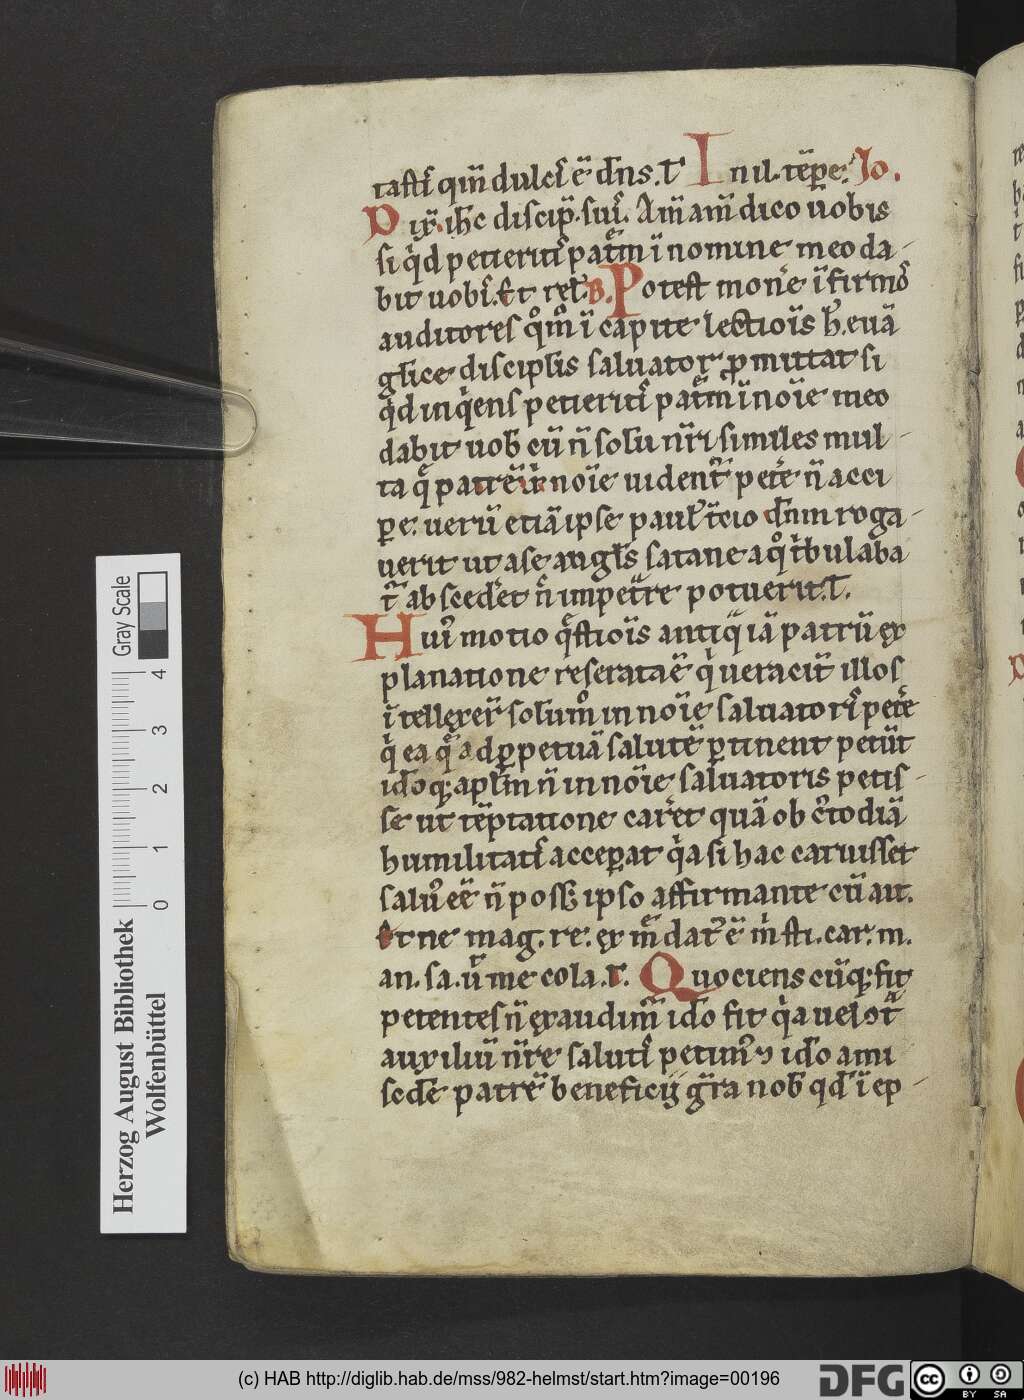 tasti qm̄ dulcī ē dn̄s. t̄ In il. tēp̄e. Jo.
Dix̄. ih̄c discip̄. suī. Am̄ am̄ dico uobis
si qͥd petieritī pat̄m ī nomine meo da-
bit uobī. Et rel̄. B. Potest mon̄e īfirmos
auditores qͦmͦ ī capite lectiois h̄. euā
gl̄ice discipl̄is saluator ꝓmittat si
qͥd inqͥens petieritī pat̄m ī noīe meo
dabit uob̄ cū n̄ solū nr̄i similes mul-
ta q̄ patrē ī noīe uident̄ pet̄e n̄ acci
ꝑe. uerū etiā ipse paul̄ t̄cio dn̄m roga-
uerit ut a se angl̄s satane a qͦ tͥbulaba
t̄ abscedet n̄ impet̄re potuerit. t̄.
Hui motio q̄stiois antiq̄ iā patrū ex
planatione reserata ē qͥ ueracit̄ illos
ītellexer̄ solūmͦ in noīe saluatorī pet̄e
qͥ ea q̄ ad ꝑpetuā salutē ꝑtinent petūt
ido̅q; apl̄m n̄ in noīe saluatoris petis-
se ut tēptatione caret quā ob c̄todiā
humilitatī acceꝑat qͥa si hac caruisset
salu eē n̄ poss; ipso affirmante cū ait.
Et ne mag. re. ex m̄dat ē m̄ sti. car. m.
an. sa. ū me cola. r. Quociens cūq; fit
petentes n̄ exaudim̄ ido̅ fit qͥa uel ɔt̄
auxiliū nr̄e salutī petimꝰ ⁊ ido̅ a mi
sc̄de patrē beneficij gr̄a nob̄ qd̄ īep-
Herzog August Bibliothek
Wolfenbüttel
0 1 2 3 4
Gray Scale
(c) HAB http://diglib.hab.de/mss/982-helmst/start.htm?image=00196
DFG
cc BY SA